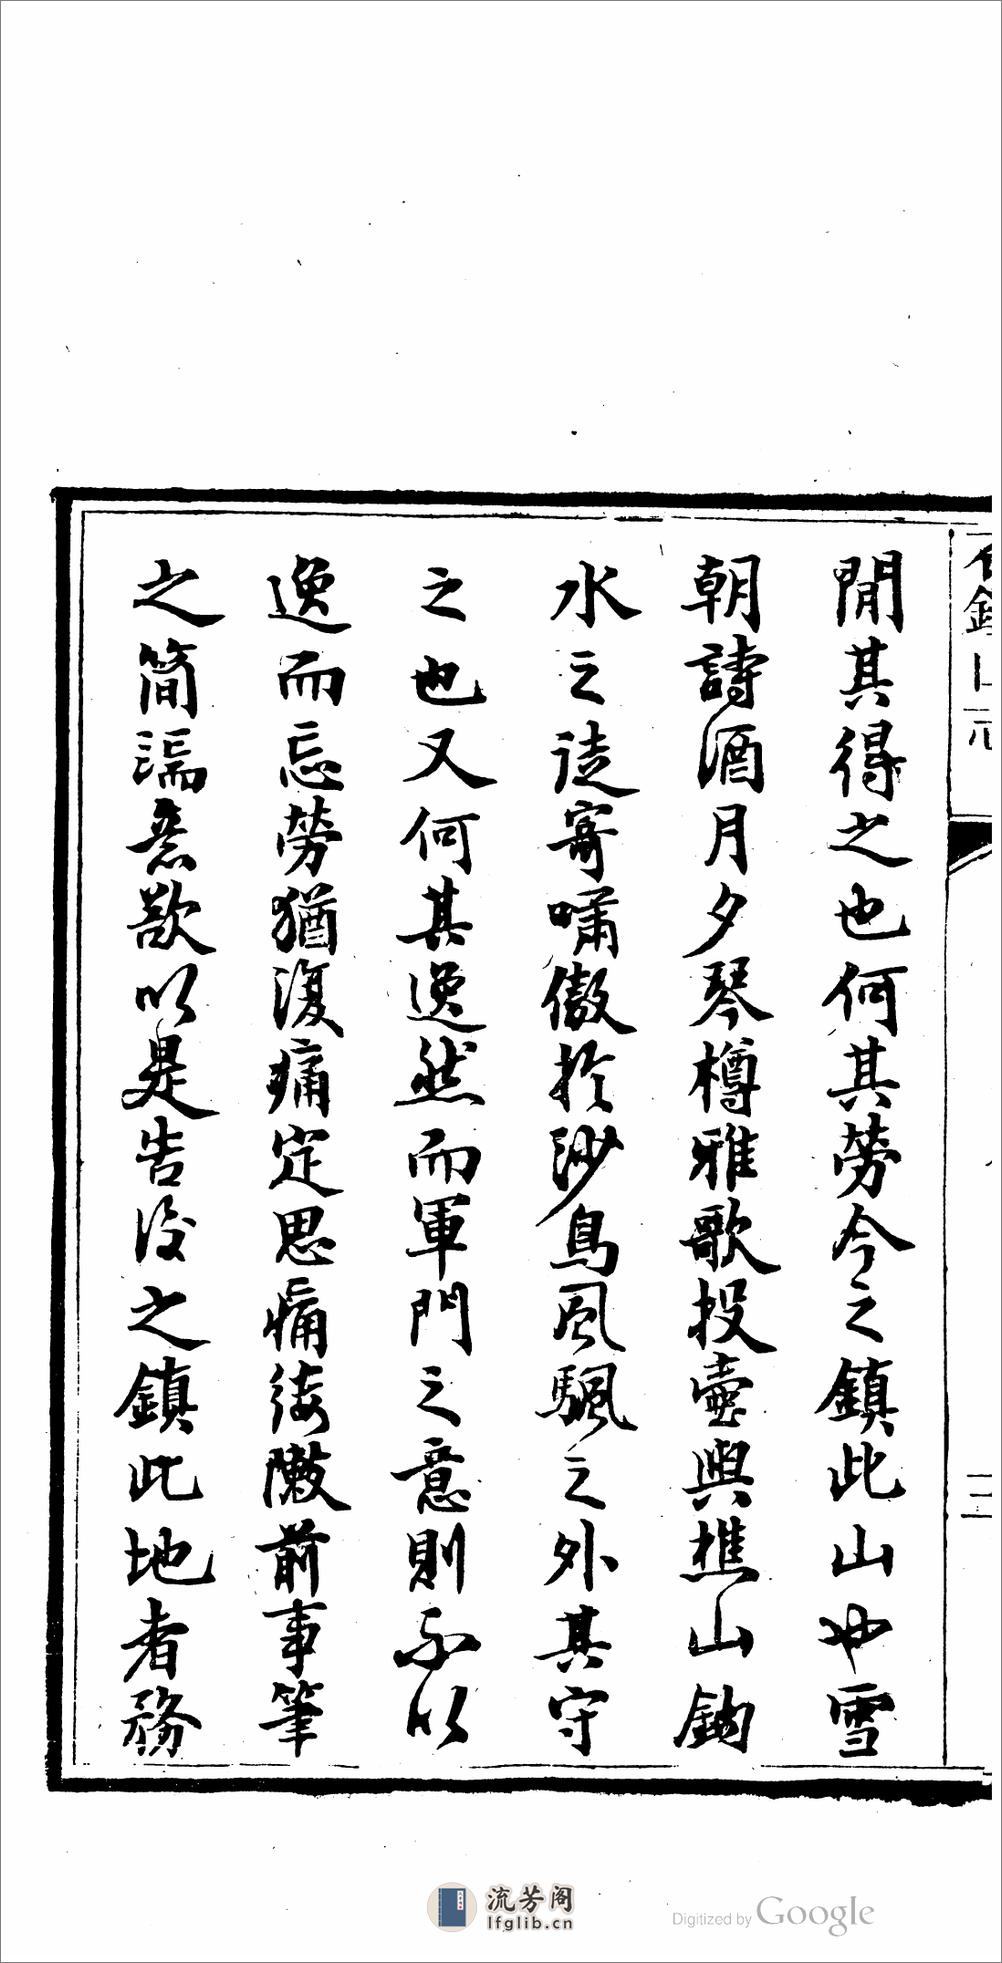 三
閒其得之也何其勞今之鎮此山也雪
朝詩酒月夕琴樽雅歌投壺與樵山釣
水之徒寄嘯傲於沙鳥風颿之外其守
之也又何其逸然而軍門之意則不以
逸而忘勞猶復痛定思痛後敘前事筆
之簡端意欲以是告後之鎮此地者務
流芳阁
lfglib.cn
Digitized by Google